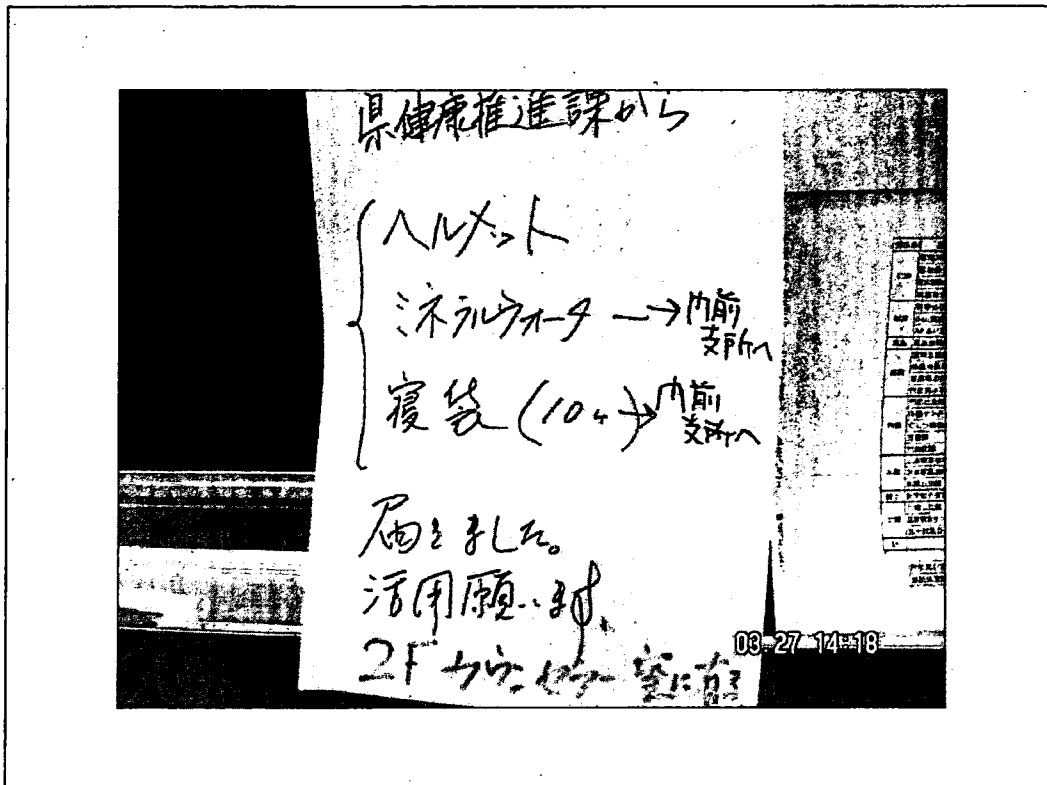 県健康推進課から
ヘルメット
ミネラルウォータ → 門前
支所へ
寝袋 (10ヶ) → 門前
支所へ
届きました。
活用願います。
2F カウンセラー室に有ります
03-27 14:18